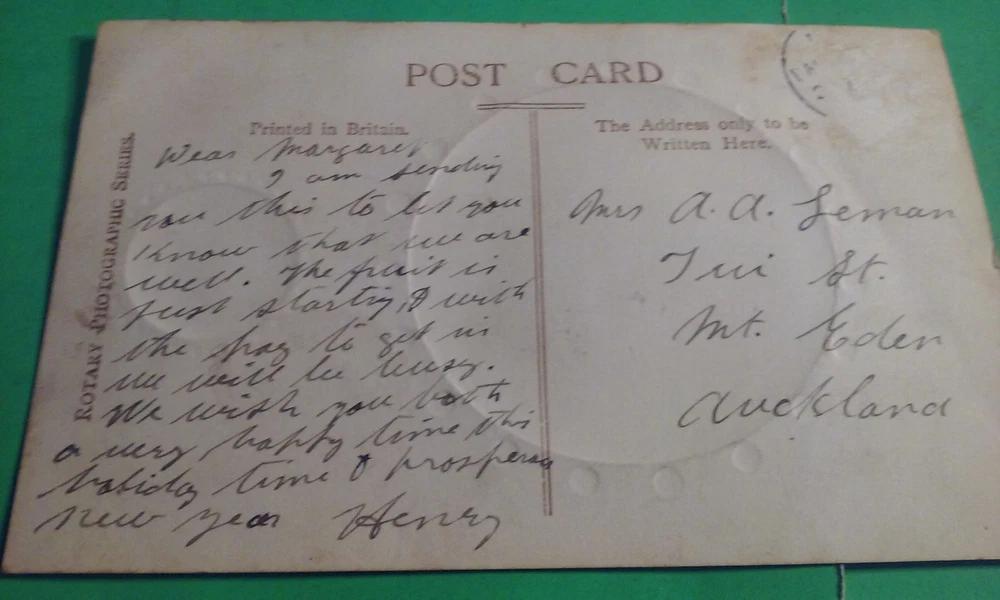 POST CARD
Printed in Britain.
The Address only to be
Written Here.
ROTARY PHOTOGRAPHIC SERIES.
Dear Margaret
I am sending
you this to let you
know that we are
well. The fruit is
just starting, & with
the hay to get in
we will be busy.
We wish you both
a very happy time this
holiday time & prosperous
New year Henry
Mrs A. A. Leman
Tui St.
Mt. Eden
Auckland